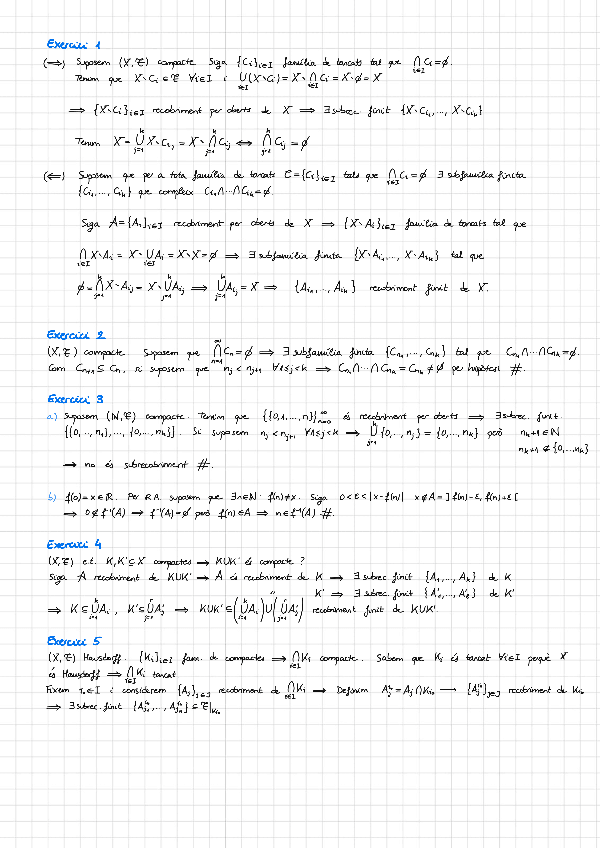 Exercici 1
(⟹) Suposem (X,τ) compacte. Siga {C_i}_{i∈I} família de tancats tal que ⋂_{i∈I} C_i = ∅.
Tenim que X∖C_i ∈ τ ∀i∈I i ⋃_{i∈I}(X∖C_i) = X∖⋂_{i∈I} C_i = X∖∅ = X
⟹ {X∖C_i}_{i∈I} recobriment per oberts de X ⟹ ∃ subrec. finit {X∖C_{i_1}, ..., X∖C_{i_k}}
Tenim X = ⋃_{j=1}^{k} X∖C_{i_j} = X∖⋂_{j=1}^{k} C_{i_j} ⟺ ⋂_{j=1}^{k} C_{i_j} = ∅
(⟸) Suposem que per a tota família de tancats C = {C_i}_{i∈I} tals que ⋂_{i∈I} C_i = ∅ ∃ subfamília finita
{C_{i_1}, ..., C_{i_k}} que compleix C_{i_1}∩···∩C_{i_k} = ∅.
Siga A = {A_i}_{i∈I} recobriment per oberts de X ⟹ {X∖A_i}_{i∈I} família de tancats tal que
⋂_{i∈I} X∖A_i = X∖⋃_{i∈I} A_i = X∖X = ∅ ⟹ ∃ subfamília finita {X∖A_{i_1}, ..., X∖A_{i_k}} tal que
∅ = ⋂_{j=1}^{k} X∖A_{i_j} = X∖⋃_{j=1}^{k} A_{i_j} ⟹ ⋃_{j=1}^{k} A_{i_j} = X ⟹ {A_{i_1}, ..., A_{i_k}} recobriment finit de X.
Exercici 2
(X,τ) compacte. Suposem que ⋂_{n=1}^{∞} C_n = ∅ ⟹ ∃ subfamília finita {C_{n_1}, ..., C_{n_k}} tal que C_{n_1}∩···∩C_{n_k} = ∅.
Com C_{n+1} ⊆ C_n, si suposem que n_j < n_{j+1} ∀1≤j<k ⟹ C_{n_1}∩···∩C_{n_k} = C_{n_k} ≠ ∅ per hipòtesi #.
Exercici 3
a.) Suposem (ℕ,τ) compacte. Tenim que {{0,1,...,n}}_{n=0}^{∞} és recobriment per oberts ⟹ ∃ subrec. finit.
{{0,..,n_1},...,{0,..,n_k}}. Si suposem n_j < n_{j+1} ∀1≤j<k ⟶ ⋃_{j=1}^{k} {0,..,n_j} = {0,...,n_k} però n_k+1 ∈ ℕ
n_k+1 ∉ {0,...n_k}
⟶ no és subrecobriment #.
b) f(0) = x ∈ ℝ. Per RA. suposem que ∃n∈ℕ: f(n) ≠ x. Siga 0<ε<|x-f(n)| x ∉ A = ]f(n)-ε, f(n)+ε[
⟹ 0 ∉ f⁻¹(A) ⟶ f⁻¹(A) = ∅ però f(n) ∈ A ⟹ n ∈ f⁻¹(A) #.
Exercici 4
(X,τ) e.t. K,K' ⊆ X compactes ⟶ K∪K' és compacte?
Siga A recobriment de K∪K' ⟶ A és recobriment de K ⟶ ∃ subrec. finit {A_1, ..., A_k} de K
K' ⟹ ∃ subrec. finit {A'_1, ..., A'_r} de K'
⟹ K ⊆ ⋃_{i=1}^{k} A_i, K' ⊆ ⋃_{j=1}^{r} A'_j ⟹ K∪K' ⊆ (⋃_{i=1}^{k} A_i) ∪ (⋃_{j=1}^{r} A'_j) recobriment finit de K∪K'.
Exercici 5
(X,τ) Hausdorff. {K_i}_{i∈I} fam. de compactes ⟹ ⋂_{i∈I} K_i compacte. Sabem que K_i és tancat ∀i∈I perquè X
és Hausdorff ⟹ ⋂_{i∈I} K_i tancat
Fixem i_0∈I i considerem {A_j}_{j∈J} recobriment de ⋂_{i∈I} K_i ⟶ Definim A_j^{i_0} = A_j ∩ K_{i_0} ⟶ {A_j^{i_0}}_{j∈J} recobriment de K_{i_0}
⟹ ∃ subrec. finit {A_{j_1}^{i_0}, ..., A_{j_n}^{i_0}} ⊆ τ|_{K_{i_0}}